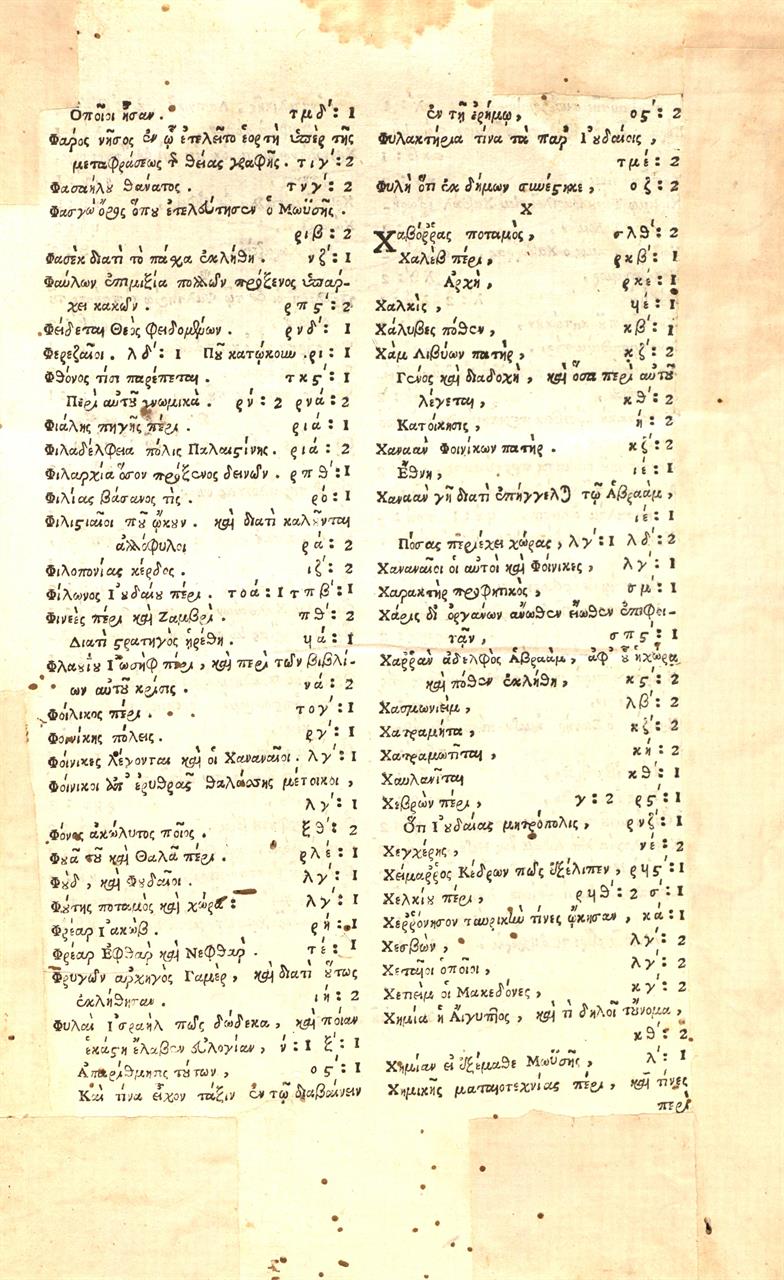 Ὁποῖοι ἦσαν. τμδ´: 1
Φάρος νῆσος ἐν ᾧ ἐτελεῖτο ἑορτὴ ὑπὲρ τῆς
μεταφράσεως τ῀ θείας γραφῆς. τιγ´: 2
Φασαήλου θάνατος. τνγ´: 2
Φασγὼ ὄρος ὅπου ἐτελεύτησεν ὁ Μωϋσῆς.
ριβ´: 2
Φασὲκ διατὶ τὸ πάσχα ἐκλήθη. νζ´: 1
Φαύλων ἐπιμιξία πολλῶν πρόξενος ὑπάρ-
χει κακῶν. ρπϛ´: 2
Φείδεται Θεὸς φειδομένων. ρνδ´: 1
Φερεζαῖοι. λδ´: 1 Ποῦ κατῴκουν. ρι: 1
Φθόνος τίσι παρέπεται. τκϛ´: 1
Περὶ αὐτοῦ γνωμικά. ρν´: 2 ρνά: 2
Φιάλης πηγῆς πέρι. ριά: 1
Φιλαδέλφεια πόλις Παλαιστίνης. ριά: 2
Φιλαρχία ὅσον πρόξενος δεινῶν. ρπθ´: 1
Φιλίας βάσανος τίς. ρό: 1
Φιλιστιαῖοι ποῦ ᾤκουν. καὶ διατὶ καλοῦνται
ἀλλόφυλοι ρά: 2
Φιλοπονίας κέρδος. ιζ´: 2
Φίλωνος Ἰουδαίου πέρι. τοά: 1 τπβ´: 1
Φινεὲς πέρι καὶ Ζαμβρί. πθ´: 2
Διατὶ στρατηγὸς ᾑρέθη. ϥά: 1
Φλαυΐου Ἰωσὴφ πέρι, καὶ περὶ τῶν βιβλί-
ων αὐτοῦ κρίσις. νά: 2
Φοίλικος πέρι. τογ´: 1
Φοινίκης πόλεις. ργ´: 1
Φοίνικες λέγονται καὶ οἱ Χαναναῖοι. λγ´: 1
Φοίνικοι ἀπ᾽ ἐρυθρᾶς θαλάσσης μέτοικοι,
λγ´: 1
Φόνος ἀκώλυτος ποῖος. ξθ´: 2
Φουᾶ τοῦ καὶ Θαλᾶ πέρι. ρλέ: 1
Φοὺδ, καὶ Φουδαῖοι. λγ´: 1
Φούτης ποταμὸς καὶ χώρα: λγ´: 1
Φρέαρ Ἰακώβ. ρή: 1
Φρέαρ Ἐφθὰρ καὶ Νεφθάρ. τέ: 1
Φρυγῶν ἀρχηγὸς Γαμὲρ, καὶ διατὶ οὕτως
ἐκλήθησαν. ιή: 2
Φυλαὶ Ἰσραὴλ πῶς δώδεκα, καὶ ποίαν
ἑκάστη ἔλαβεν εὐλογίαν, ν´: 1 ξ´: 1
Ἀπαρίθμησις τούτων, οϛ´: 1
Καὶ τίνα εἶχον τάξιν ἐν τῷ διαβαίνειν
ἐν τῇ ἐρήμῳ, οϛ´: 2
Φυλακτήρια τίνα τὰ παρ᾽ Ἰουδαίοις,
τμέ: 2
Φυλὴ ὅτι ἐκ δήμων συνέστηκε, οζ´: 2
Χ
Χαβόῤῥας ποταμὸς, σλθ´: 2
Χαλὲβ πέρι, ρκβ´: 1
Ἀρχὴ, ρκέ: 1
Χαλκὶς, ϥέ: 1
Χάλυβες πόθεν, κβ´: 1
Χὰμ Λιβύων πατὴρ, κζ´: 2
Γένος καὶ διαδοχὴ, καὶ ὅσα περὶ αὐτοῦ
λέγεται, κθ´: 2
Κατοίκησις, ή: 2
Χαναὰν Φοινίκων πατήρ. κζ´: 2
Ἔθνη, ιέ: 1
Χαναὰν γῆ διατὶ ἐπήγγελται τῷ Ἀβραὰμ,
ιέ: 1
Πόσας περιέχει χώρας, λγ´: 1 λδ´: 2
Χαναναῖοι οἱ αὐτοὶ καὶ Φοίνικες, λγ´: 1
Χαρακτὴρ προφητικὸς, σμ´: 1
Χάρις δι᾽ ὀργάνων ἄνωθεν εἴωθεν ἐπιφοι-
τᾷν, σπϛ´: 1
Χαῤῥὰν ἀδελφὸς Ἀβραὰμ, ἀφ᾽ οὗ ἡ χώρα
καὶ πόθεν ἐκλήθη, κϛ´: 2
Χασμωνιεὶμ, λβ´: 2
Χατραμήτα, κζ´: 2
Χατραμωτῖται, κή: 2
Χαυλανῖται κθ´: 1
Χεβρὼν πέρι, γ: 2 ρϛ´: 1
Ὅτι Ἰουδαίας μητρόπολις, ρνζ´: 1
Χεγχέρης, νέ: 2
Χείμαῤῥος Κέδρων πῶς ἐξέλιπεν, ρϥϛ´: 1
Χελκίου πέρι, ρϥθ´: 2 σ´: 1
Χεῤῥόνησον ταυρικὴν τίνες ᾤκησαν, κά: 1
Χεσβὼν, λγ´: 2
Χεταῖοι ὁποῖοι, λγ´: 2
Χετιεὶμ οἱ Μακεδόνες, κγ´: 2
Χημία ἡ Αἴγυπτος, καὶ τί δηλοῖ τοὔνομα,
κθ´: 2
Χημίαν εἰ ἐξέμαθε Μωϋσῆς, λ´: 1
Χημικῆς ματαιοτεχνίας πέρι, καὶ τίνες
περὶ